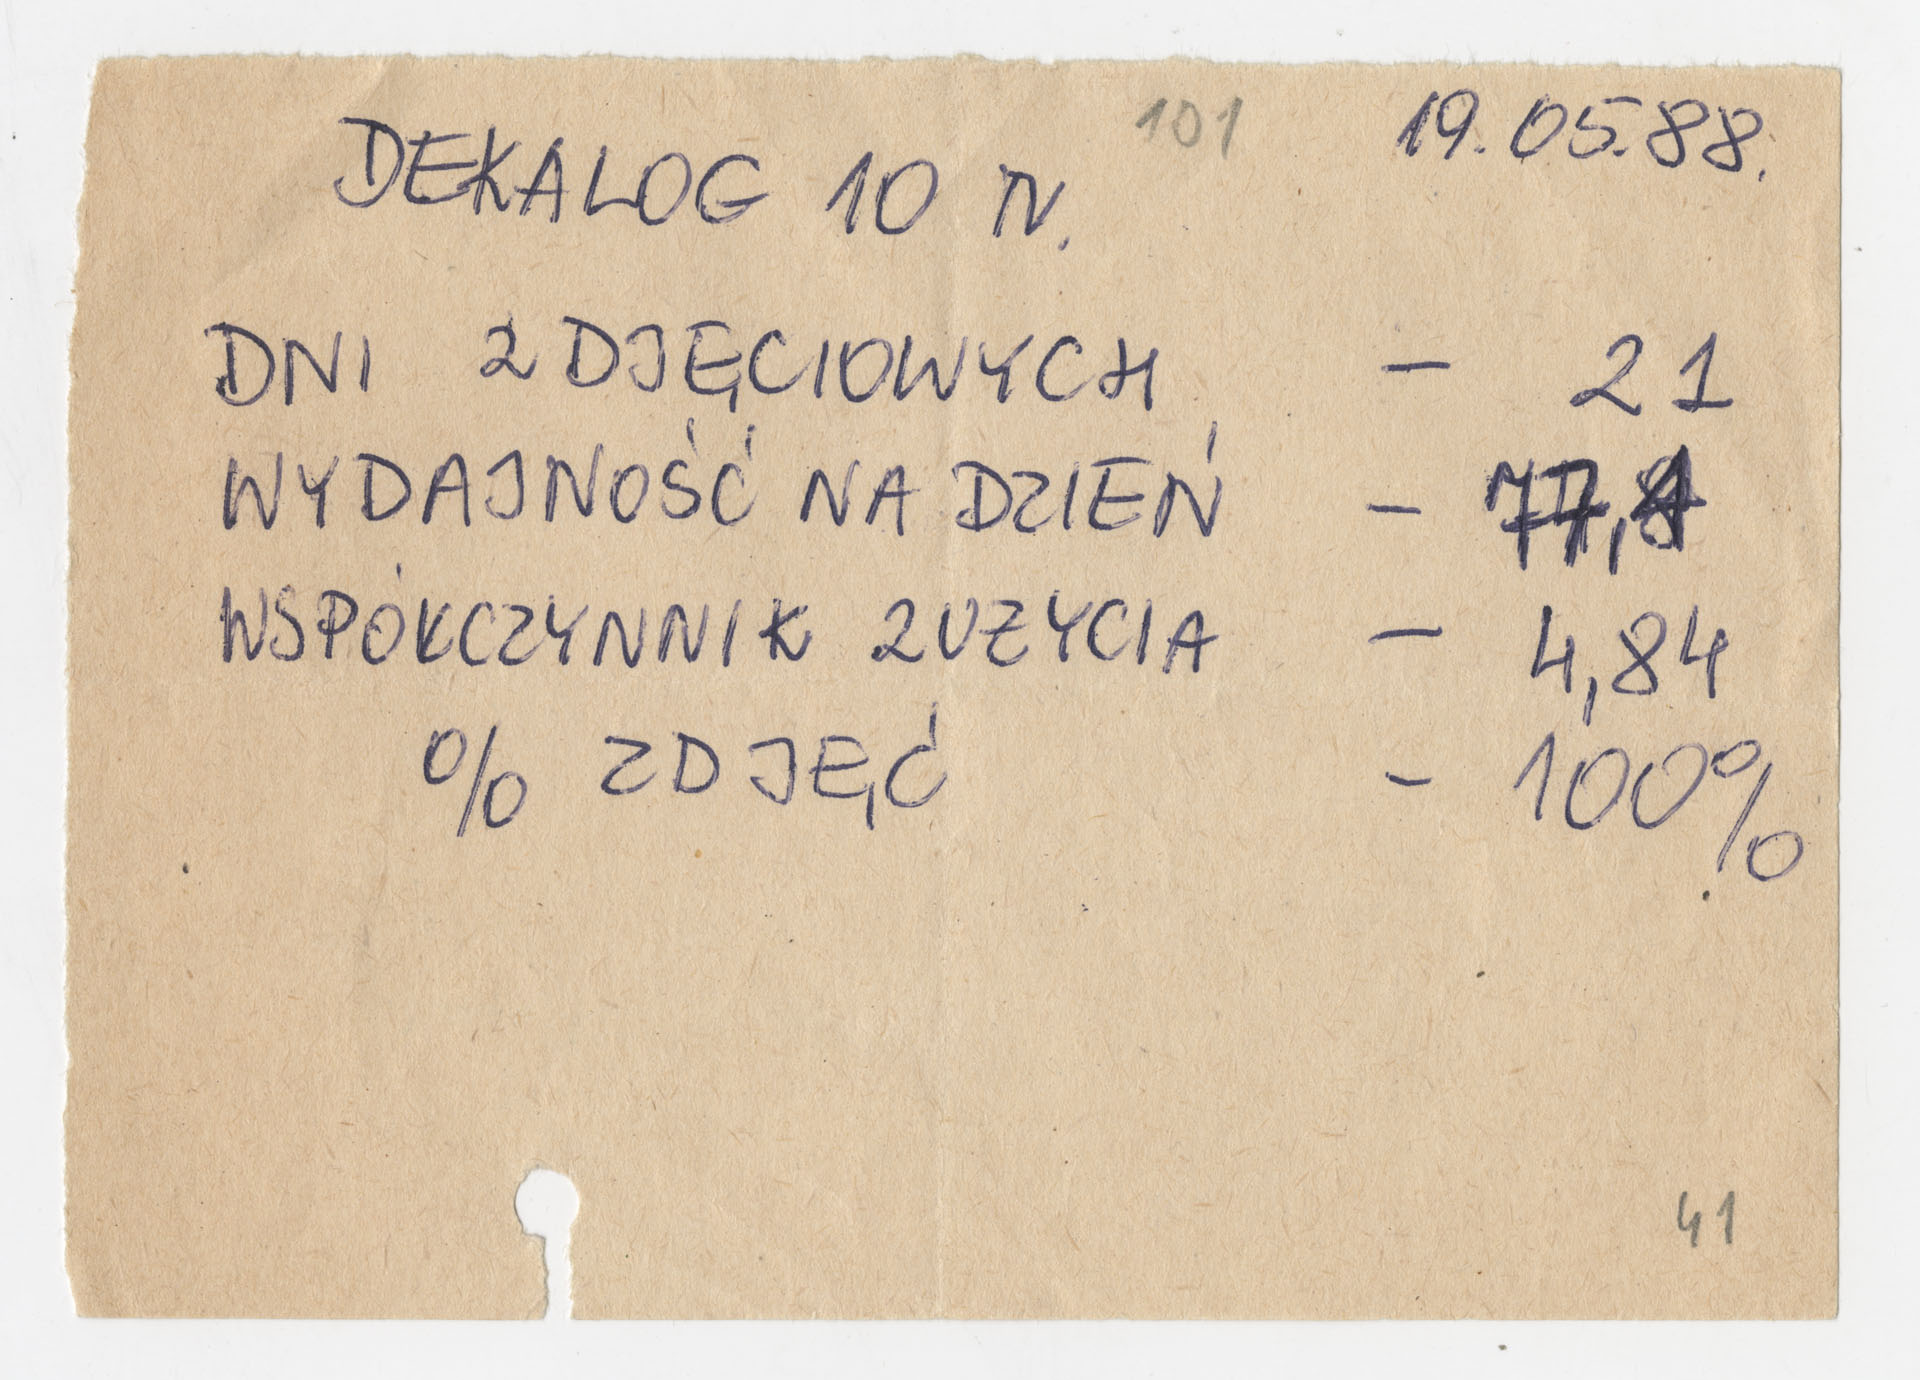 101
19.05.88.
DEKALOG 10 TV.
DNI ZDJĘCIOWYCH - 21
WYDAJNOŚĆ NA DZIEŃ -
WSPÓŁCZYNNIK ZUŻYCIA - 4,84
% ZDJĘĆ - 100%
41